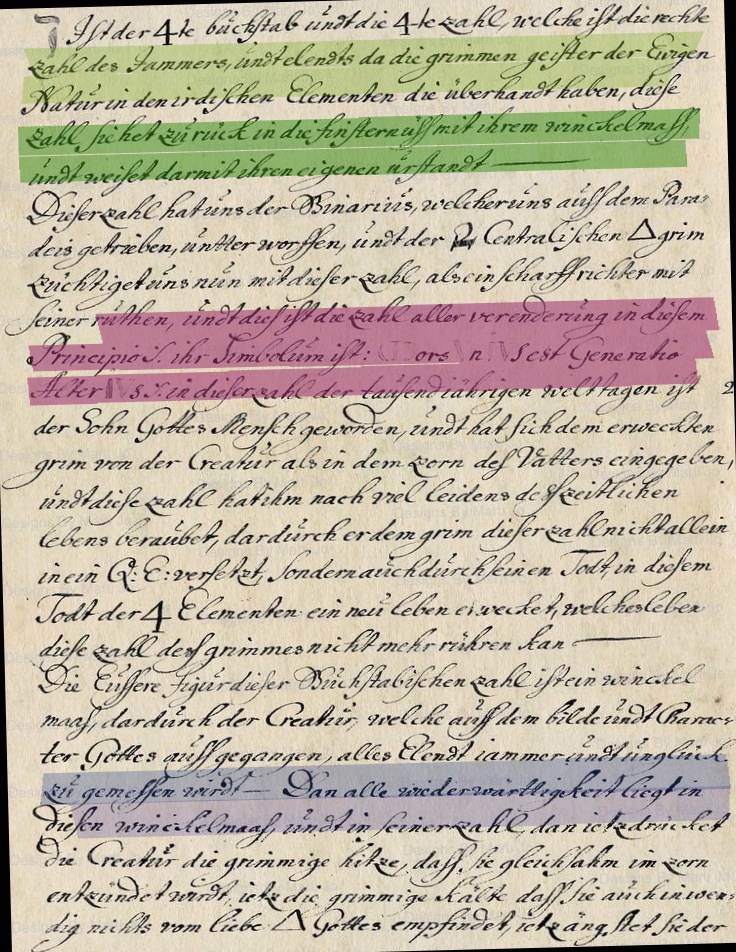 ד Ist der 4-te buchstab undt die 4-te zahl, welche ist die rechte
zahl des Jammers, undt elendts da die grimmen geister der Ewigen
Natur in den irdischen Elementen die überhandt haben, diese
zahl siehet zurück in die finsternüss mit ihrem winckelmass,
undt weiset darmit ihren eigenen urstandt —
Dieser zahl hat uns der Binarius, welcher uns auss dem Para-
deis getrieben, untterworffen, undt der Centralischen △ grim
züchtiget uns nun mit dieser zahl, als ein scharffrichter mit
seiner ruthen, undt dies ist die zahl aller verenderung in diesem
Principio ihr Simbolum ist: ors n s est Generatio
Alter s in dieser zahl der tausendt jährigen welttagen ist 2
der Sohn Gottes Mensch geworden, undt hat sich dem erweckten
grim von der Creatur als in dem zorn des Vatters eingegeben,
undt diese zahl hat ihm nach viel leidens des zeitlichen
lebens beraubet, dardurch er dem grim dieser zahl nicht allein
in ein Q: E: versetzt, sondern auch durch seinen Todt, in diesem
Todt der 4 Elementen ein neu leben erwecket, welches leben
diese zahl dess grimmes nicht mehr rühren kan —
Die Eussere figur dieser Buchstabischen zahl ist ein winckel
maas, dardurch der Creatur, welche auss dem bilde undt Charac-
ter Gottes aussgegangen, alles Elendt iammer undt unglück
zu gemessen wirdt — Dan alle wiederwärttigkeit liegt in
diesen winckelmaas, undt in seiner zahl, dan ietz drücket
die Creatur die grimmige hitze, dass sie gleichsahm im zorn
entzündet wirdt, ietz die grimmige Kälte dass sie auch inwen-
dig nichts vom liebe △ Gottes empfindet, ietz ängstet sie der